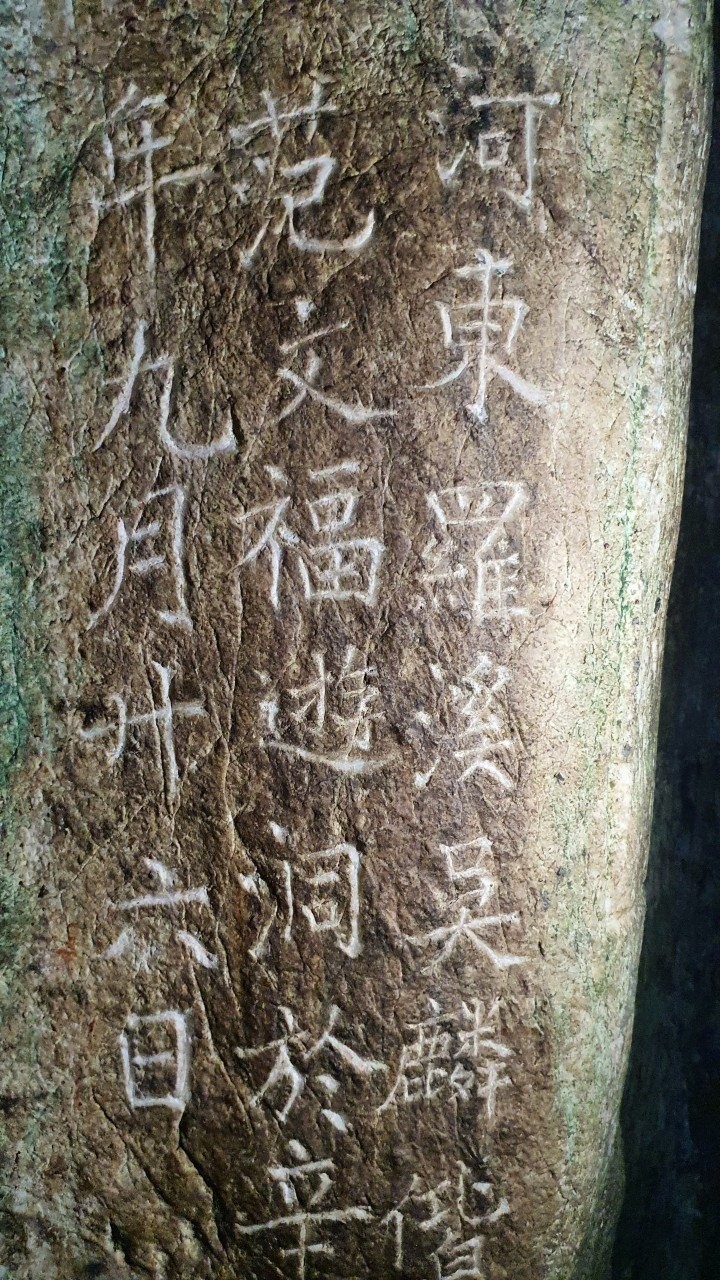 河東羅溪吴麟偕
范文福遊洞於辛
年九月廿六日